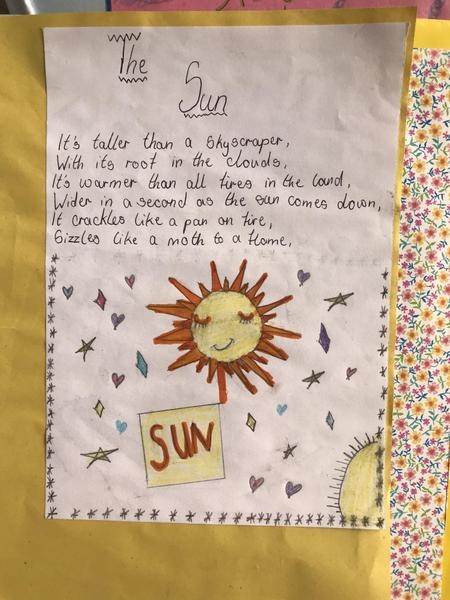 The
Sun
It's taller than a skyscraper,
With its roof in the clouds,
It's warmer than all fires in the land,
Wider in a second as the sun comes down,
It crackles like a pan on fire,
Sizzles like a moth to a flame,
SUN